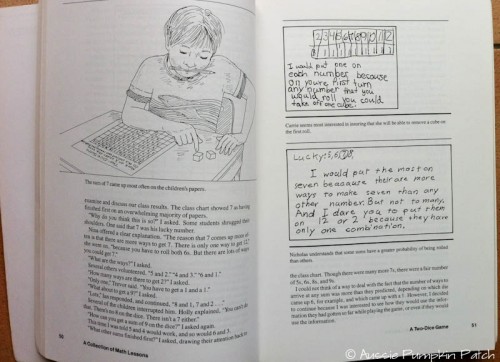 The sum of 7 came up most often on the children's papers.
examine and discuss our class results. The class chart showed 7 as having
finished first on an overwhelming majority of papers.
"Why do you think this is so?" I asked. Some students shrugged their
shoulders. One said that 7 was his lucky number.
Nora offered a clear explanation. "The reason that 7 comes up more
is that there are more ways to get 7. There is only one way to get 12,"
she went on, "because you have to roll both 6s. But there are lots of ways
you could get 7."
"What are the ways?" I asked.
Several others volunteered. "5 and 2." "4 and 3." "6 and 1."
"How many ways are there to get 2?" I asked.
"Only one," Trevor said. "You have to get a 1 and a 1."
"What about to get a 9?" I asked.
responded and continued, "8 and 1, 7 and 2
Several of the children interrupted him. Holly explained. "You can't do
that. There's no 8 on the dice. There isn't a 7 either."
"How can you get a sum of 9 on the dice?" I asked again.
This time I was told 5 and 4 would work, and so would 6 and 3.
"What other sums finished first?" I asked, drawing their attention back to
50
A Collection of Math Lessons
2 3 4 5 6 7 8 9 10 11 12
I would put one on
each number because
on youre first turn
any number that you
would roll you could
take off one cube.
Carrie seems most interested in insuring that she will be able to remove a cube on
the first roll.
Lucky:
I would put the most on
seven because their are more
ways to make seven than any
other number. But not to many.
And I dare you to put them
on 12 or 2 because they have
only one combination.
Nicholas understands that some sums have a greater probability of being rolled
than others.
the class chart. Though there were many more 7s, there were a fair number
of 5s, 6s, 8s, and 9s.
I could not think of a way to deal with the fact that the number of ways to
arrive at any sum was more than they predicted, depending on which die
came up 6, for example, and which came up with a 1. However, I decided
to continue because I was interested to see how they would use the infor-
mation they had gotten so far while playing the game, or even if they would
use the information.
A Two-Dice Game
51
© Aussie Pumpkin Patch